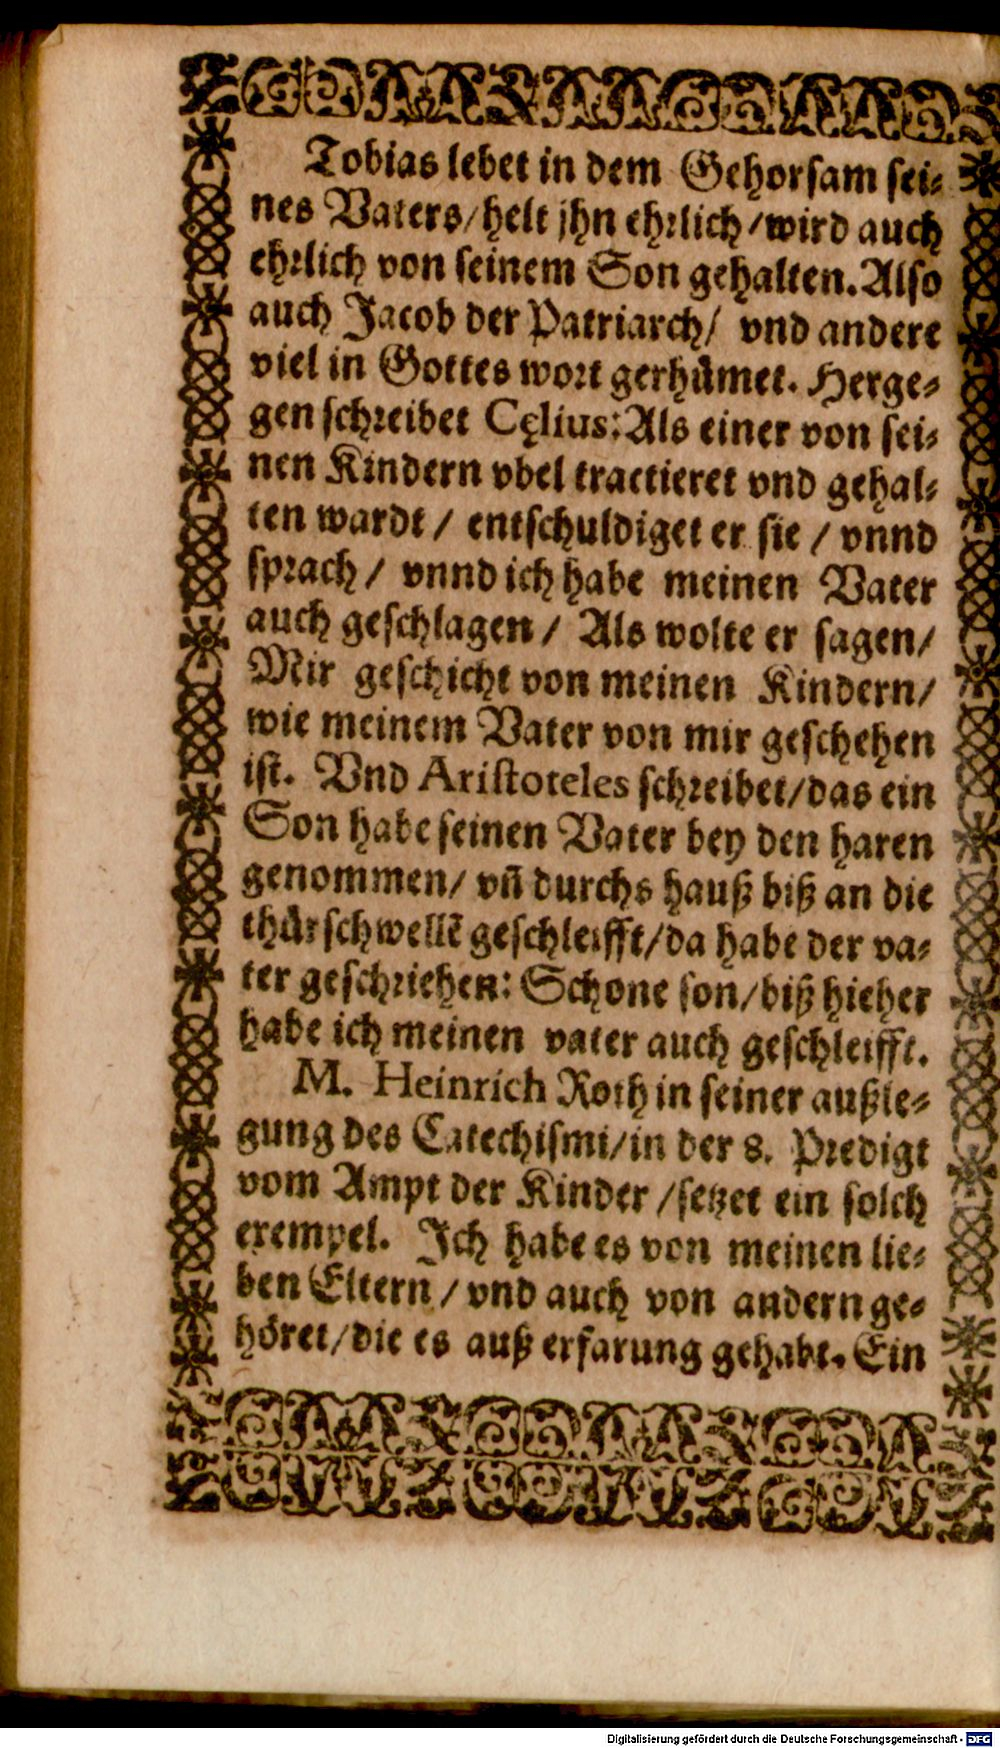 Tobias lebet in dem Gehorſam ſei⸗
nes Vaters/helt jhn ehrlich/wird auch
ehrlich von ſeinem Son gehalten. Alſo
auch Jacob der Patriarch/ vnd andere
viel in Gottes wort gerhuͤmet. Herge⸗
gen ſchreibet Cęlius: Als einer von ſei⸗
nen Kindern vbel tractieret vnd gehal⸗
ten wardt / entſchuldiget er ſie / vnnd
ſprach/ vnnd ich habe meinen Vater
auch geſchlagen / Als wolte er ſagen/
Mir geſchicht von meinen Kindern/
wie meinem Vater von mir geſchehen
iſt. Vnd Ariſtoteles ſchreibet/das ein
Son habe ſeinen Vater bey den haren
genommen/ vn̄ durchs hauß biß an die
thuͤrſchwellē geſchleifft/da habe der va⸗
ter geſchriehen: Schone ſon/biß hieher
habe ich meinen vater auch geſchleifft.
M. Heinrich Roth in ſeiner außle⸗
gung des Catechiſmi/in der 8. Predigt
vom Ampt der Kinder /ſetzet ein ſolch
exempel. Ich habe es von meinen lie⸗
ben Eltern / vnd auch von andern ge⸗
hoͤret/die es auß erfarung gehabt. Ein
Digitalisierung gefördert durch die Deutsche Forschungsgemeinschaft - DFG